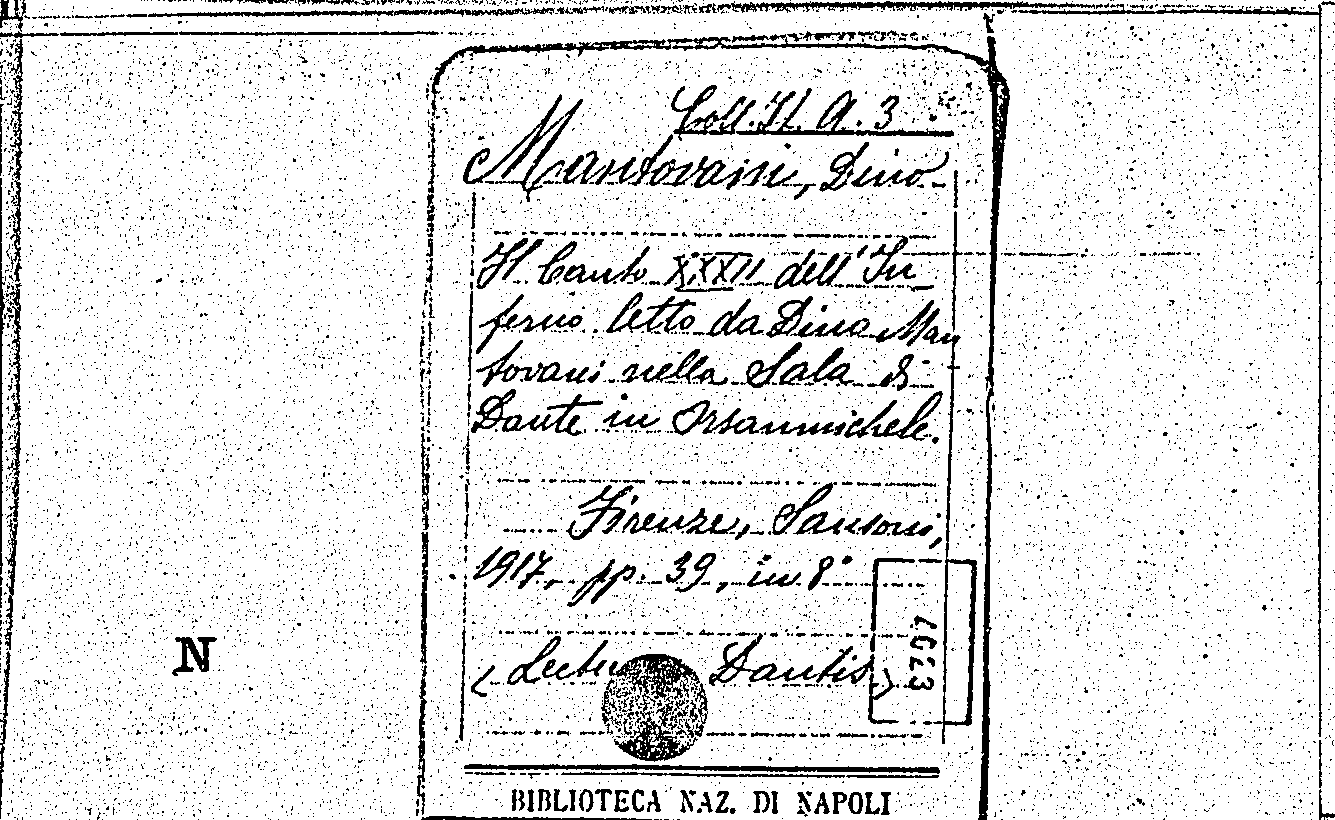 Coll. It. A. 3
Mantovani, Dino
Il Canto XXXII dell'In_
ferno letto da Dino Man
tovani nella Sala di
Dante in Orsanmichele.
Firenze, Sansoni,
1917, pp. 39, in 8°
N
(Lectu Dantis)
BIBLIOTECA NAZ. DI NAPOLI